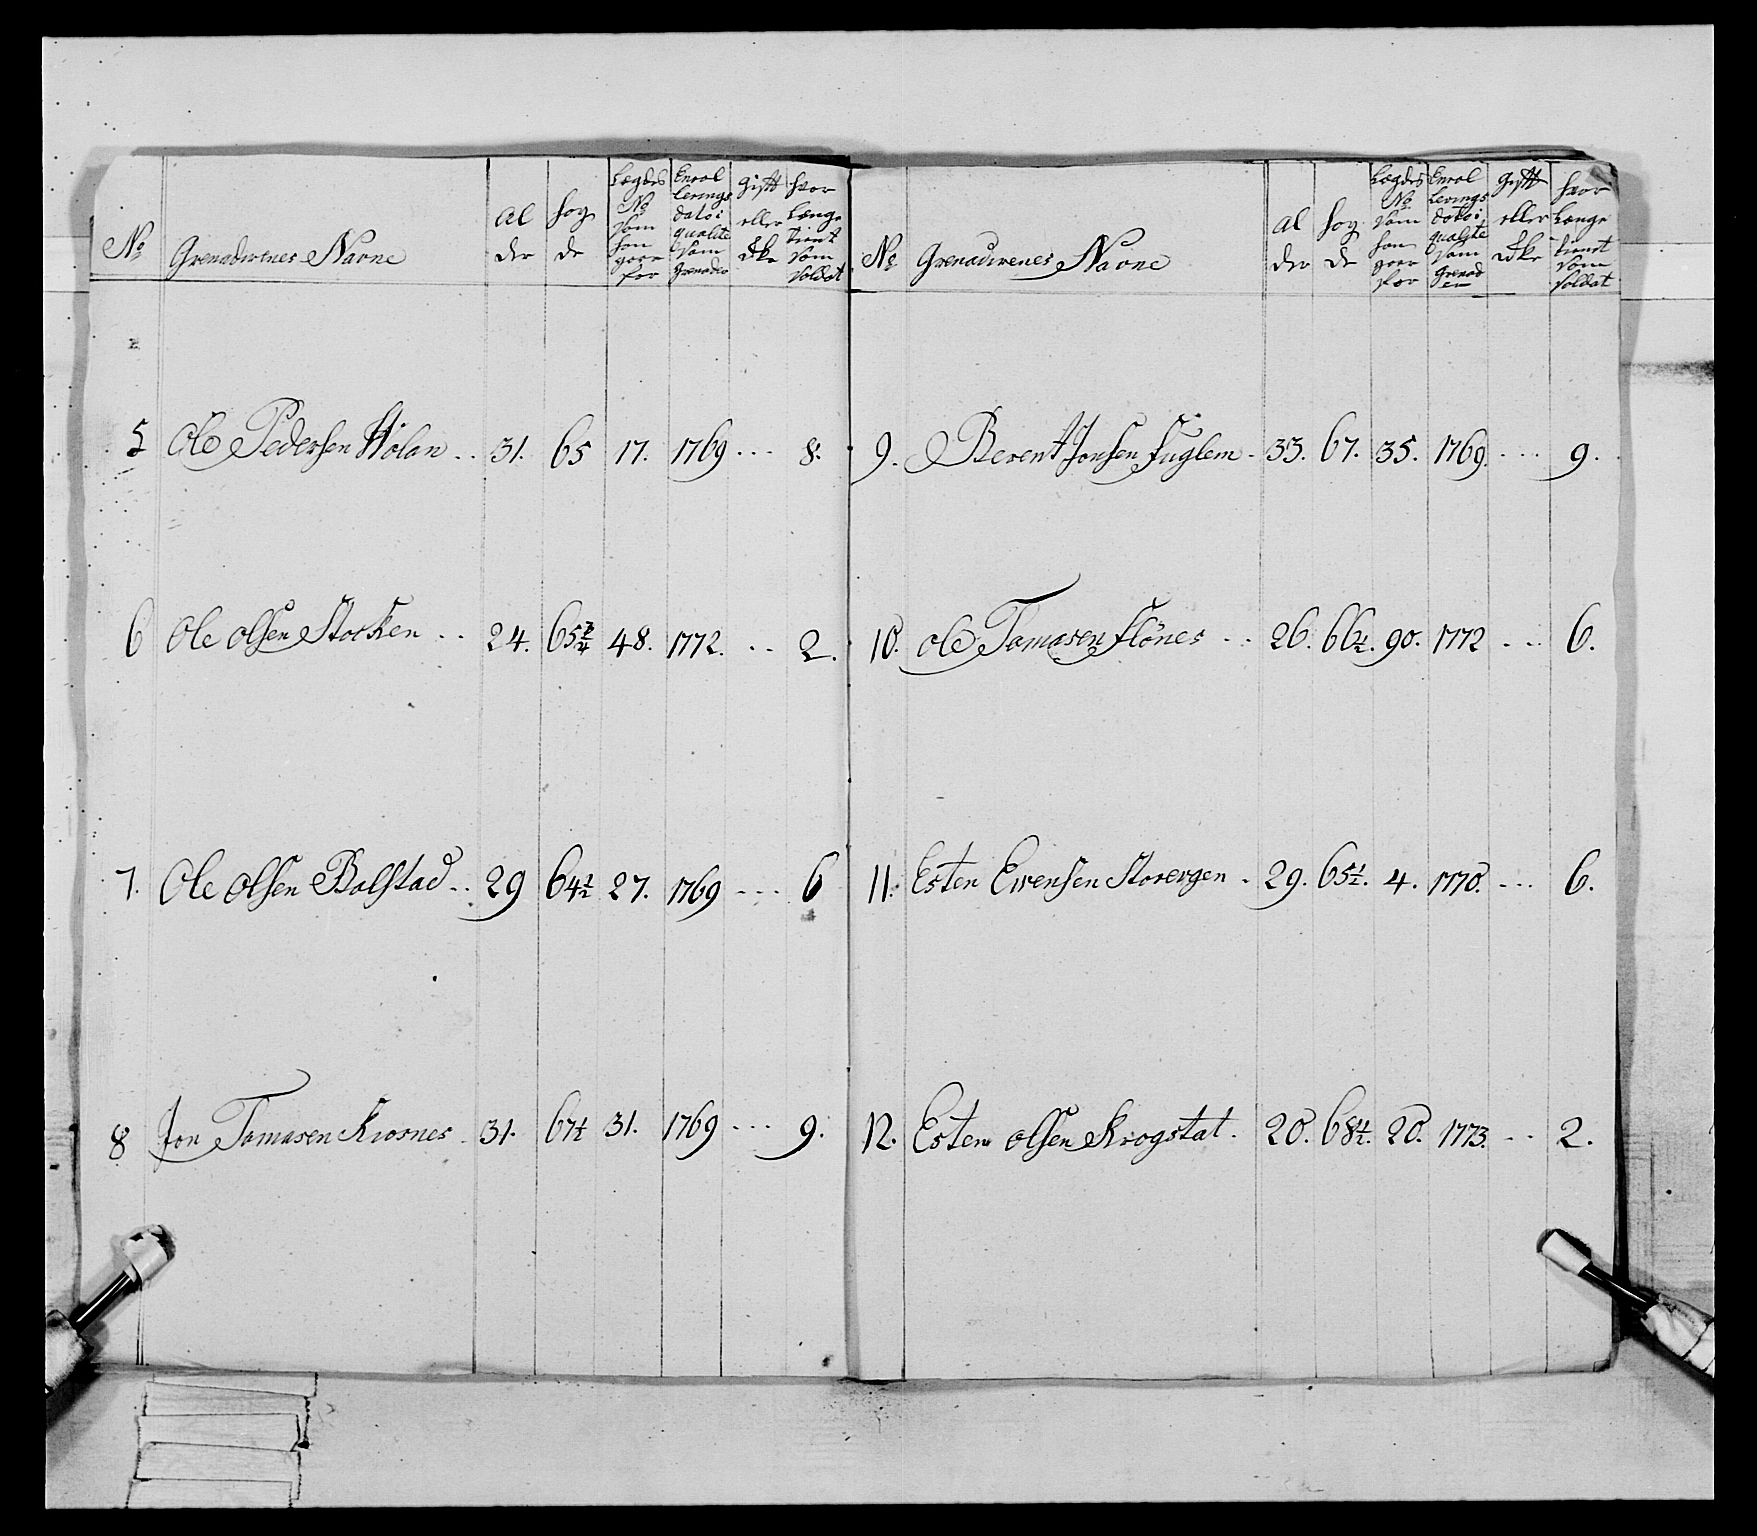 No Grenadirenes Navne Al der Høy de Lægdes No som han goer for Enrol lerings dato i qualite som Grenader Gift eller Ikke hvor Længe tient som soldat
5 Ole Pedersen Hølan .. 31. 65 17. 1769 ... 8.
6 Ole Olsen Stocken .. 24. 65 3/4 48. 1772. .. 2.
7. Ole Olsen Bolstad .. 29 64 1/2 27. 1769 ... 6
8 Jon Tomasen Krosnes . 31. 67 1/2 31. 1769 ... 9.
No Grenadirenes Navne Al der Høy de Lægdes No som han goer for Enrol lerings dato i qualite som Grenad er Gift eller Ikke hvor Længe tient som soldat
9. Berent Jonsen Fuglem . 33. 67. 35. 1769. ... 9.
10. Ole Tomasen Flönes .. 26. 66 1/2. 90. 1772 ... 6.
11. Esten Evensen Storevgen . 29. 65 1/2. 4. 1770. ... 6.
12. Esten Olsen Krogstat . 20. 68 1/2. 20. 1773. .. 2.